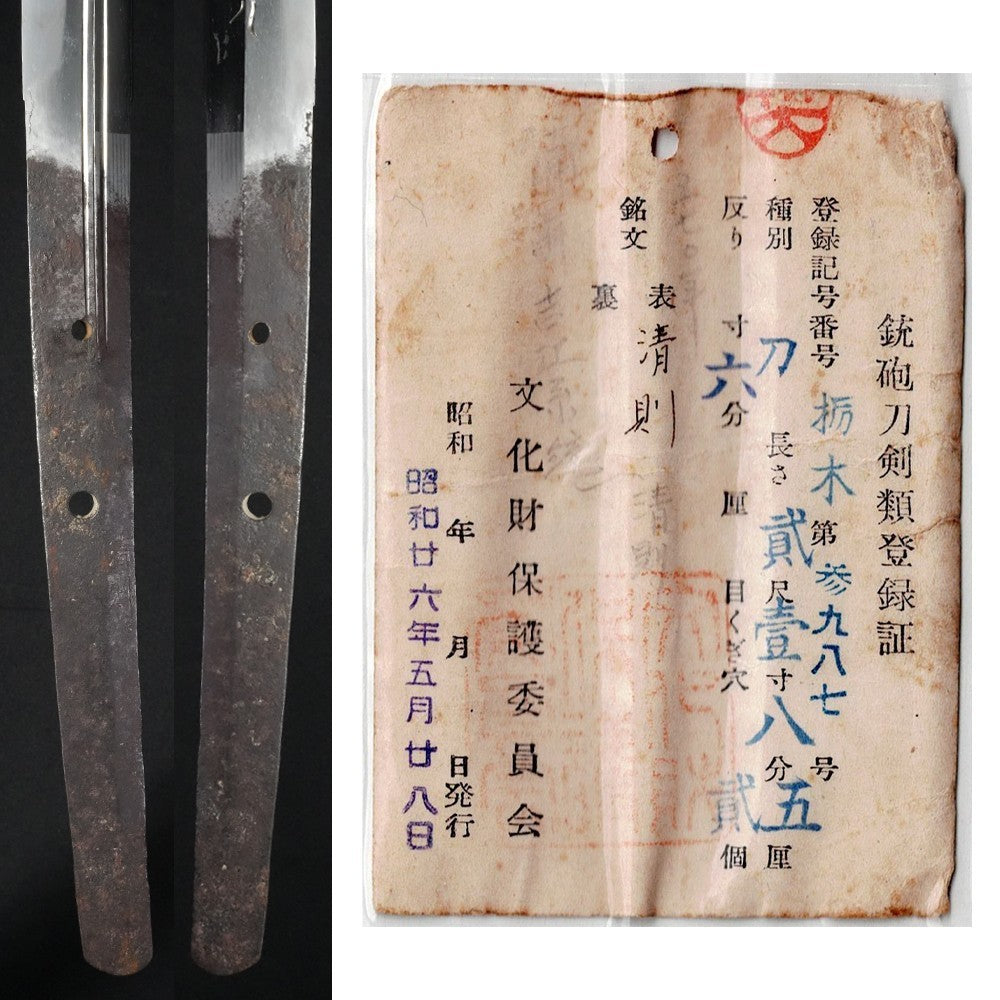 銃砲刀剣類登録証
登録記号番号 栃木 第 参九八七 号
種別 刀 長さ 貳尺壹寸八分五厘
反り 寸六分 厘 目くぎ穴 貳個
銘文
表 清則
裏
文化財保護委員会
昭和 年 月 日発行
昭和廿六年五月廿八日